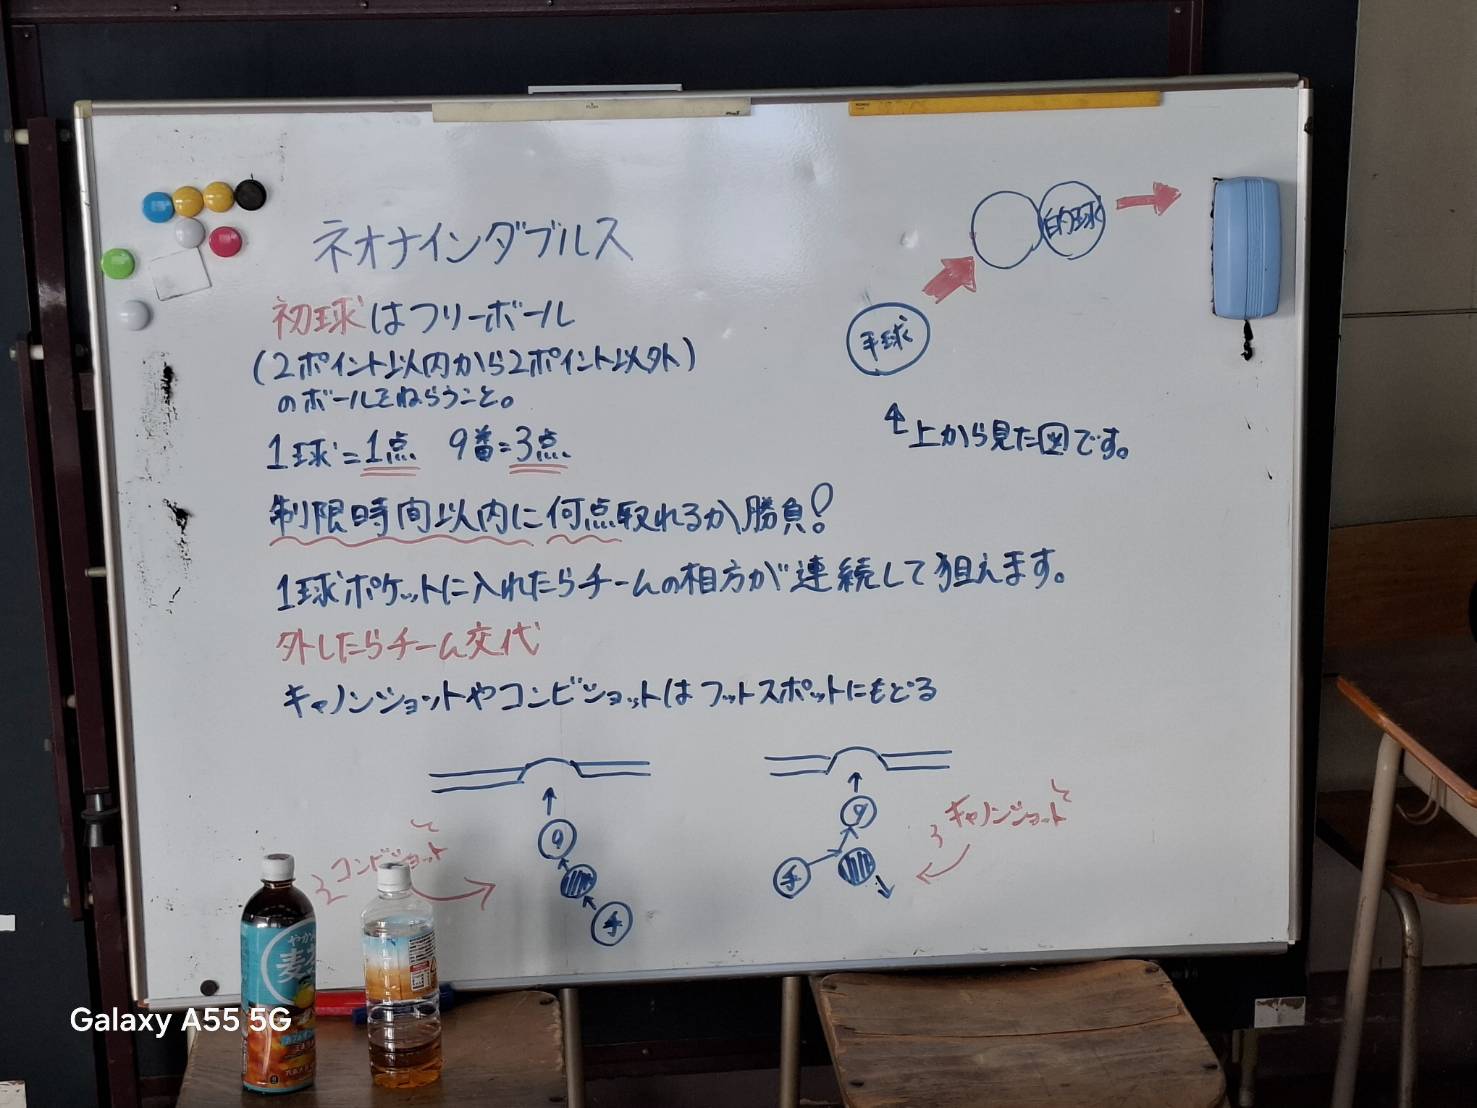 ネオナインダブルス
初球はフリーボール
(2ポイント以内から2ポイント以外)
のボールをねらうこと。
1球=1点 9番=3点
制限時間以内に何点取れるか勝負!
1球ポケットに入れたらチームの相方が連続して狙えます。
外したらチーム交代
キャノンショットやコンビショットはフットスポットにもどる
的球
手球
↑上から見た図です。
コンビショット
9
手
キャノンショット
9
手
やか
麦
Galaxy A55 5G